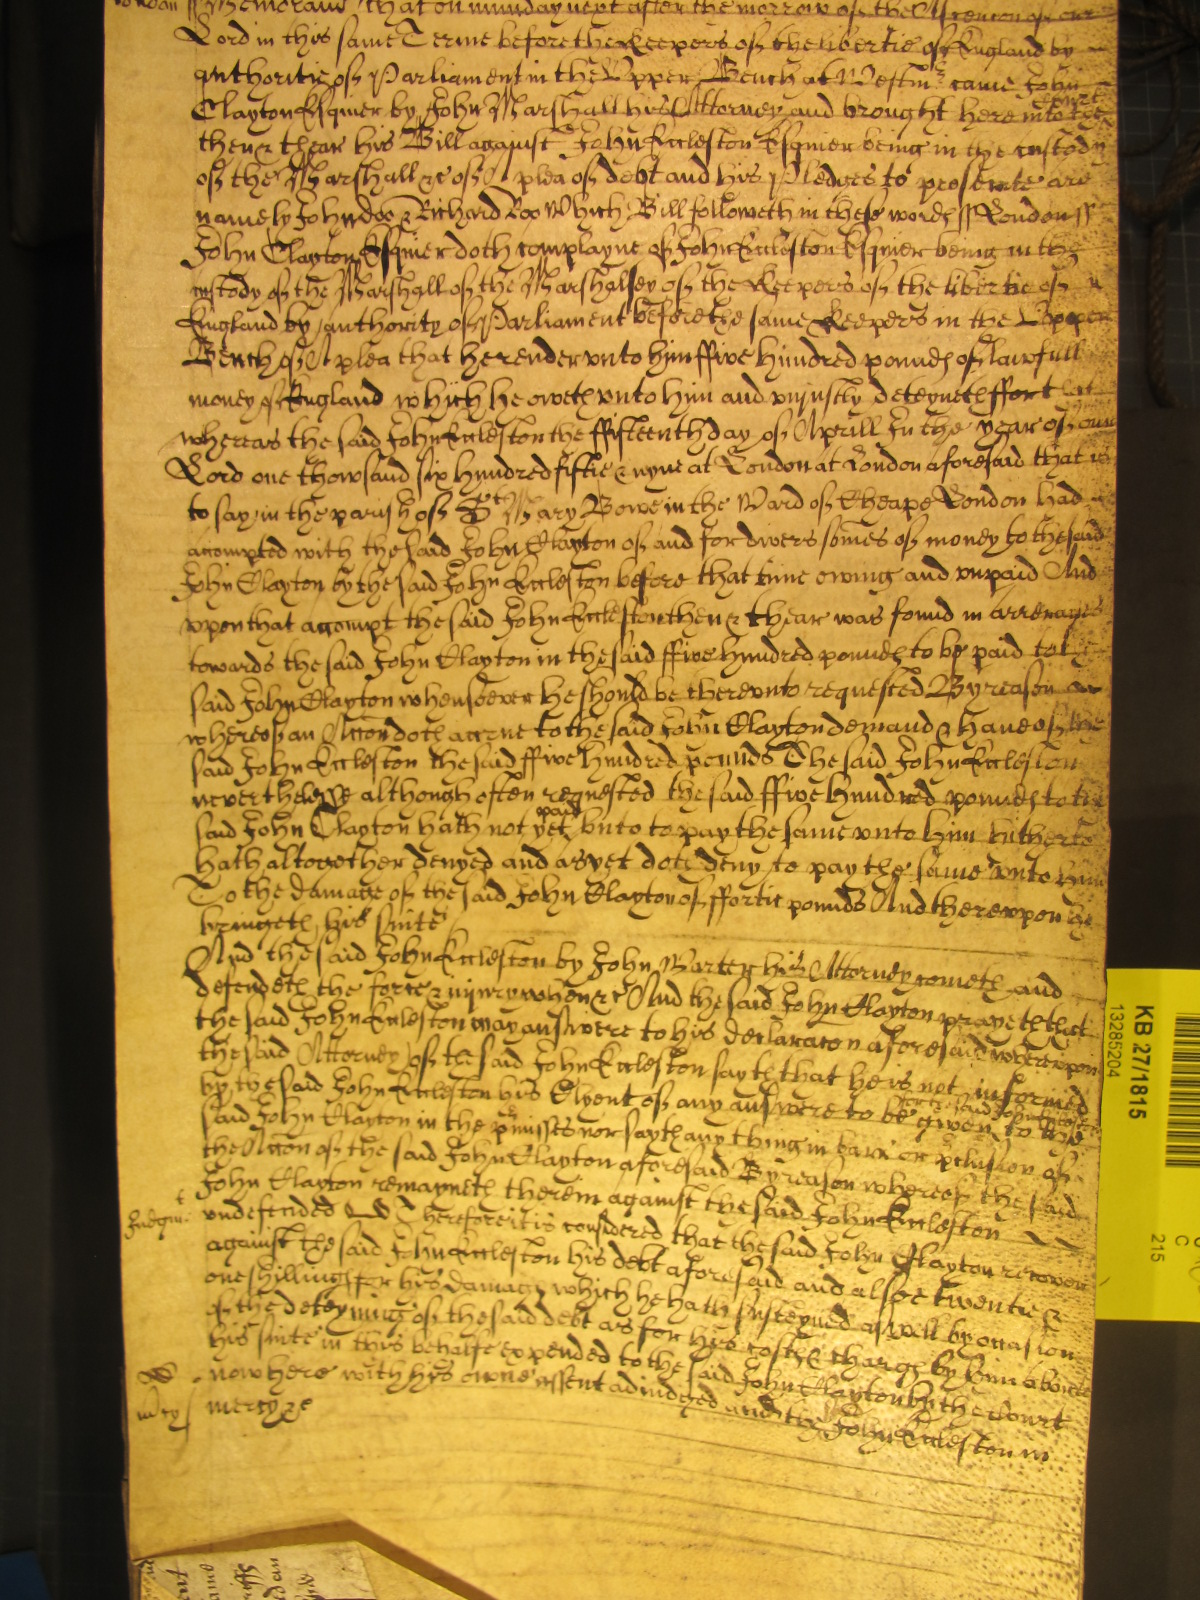 London ss Memorand that on munday next after the morrow of the Ascention of our
Lord in this same Terme before the Keepers of the libertie of England by
authoritie of Parliament in the Upper Bench at Westmr came John
Clayton Esquier by John Marshall his Attorney and brought here into the Court
then & thear his Bill against John Eccleston Esquier being in the custody
of the Marshall &c of A plea of debt and his Pledges to prosecute are
namely John doo & Richard Roo Which Bill followeth in these words ss London ss
John Clayton Esquier doth complayne of John Eccleston Esquier being in the
custody of the Marshall of the Marshalsey of the Keepers of the libertie of
England by authority of Parliament before the same Keepers in the Upper
Bench of A plea that he render unto him ffive hundred pounds of lawfull
money of England which he oweth unto him and unjustly deteyneth ffor that
whereas the said John Eccleston the ffifteenth day of Aprill In the year of our
Lord one thowsand six hundred fiftie & nyne at London at London aforesaid that is
to say in the parish of St Mary Bowe in the Ward of Cheape London had
accompted with the said John Clayton of and for divers somes of money to the said
John Clayton by the said John Eccleston before that time owing and unpaid And
uppon that accompt the said John Eccleston then & thear was found in arrerages
towards the said John Clayton in the said ffive hundred pounds to be paid to the
said John Clayton whensoever he should be thereunto requested By reason
whereof an Accon doth accrue to the said John Clayton demaund & have of the
said John Eccleston the said ffive hundred pounds The said John Eccleston
neverthelesse although often requested the said ffive hundred pounds to the
said John Clayton hath not yet paid but to pay the same unto him hitherto
hath altogether denyed and as yet doth deny to pay the same unto him
To the damage of the said John Clayton of ffortie pounds And thereuppon he
bringeth his suite
And the said John Eccleston by John Warter his Attorney cometh and
defendeth the force & injury when &c And the said John Clayton prayeth that
the said John Eccleston may answere to his declaracon aforesaid whereuppon
the said Attorney of the said John Eccleston sayth that he is not informed
by the said John Eccleston his Clyent of any answere to be given for the said John Eccleston to the
said John Clayton in the pmisses nor sayth any thing in barr or pclusion of
the Accon of the said John Clayton aforesaid By reason whereof the said
John Clayton remayneth therein against the said John Eccleston
Judgmt undefended Therefore it is considered that the said John Clayton recover
against the said John Eccleston his debt aforesaid and alsoe twentie &
one shillings for his damage which he hath susteyned aswell by occasion
of the deteyning of the said debt as for his costs & charges by him about
his suite in this behalfe expended to the said John Clayton by the Court
now here with his owne assent adiudged And the John Eccleston in
mcy mercy &c
KB 27/1815
13285204
215
C